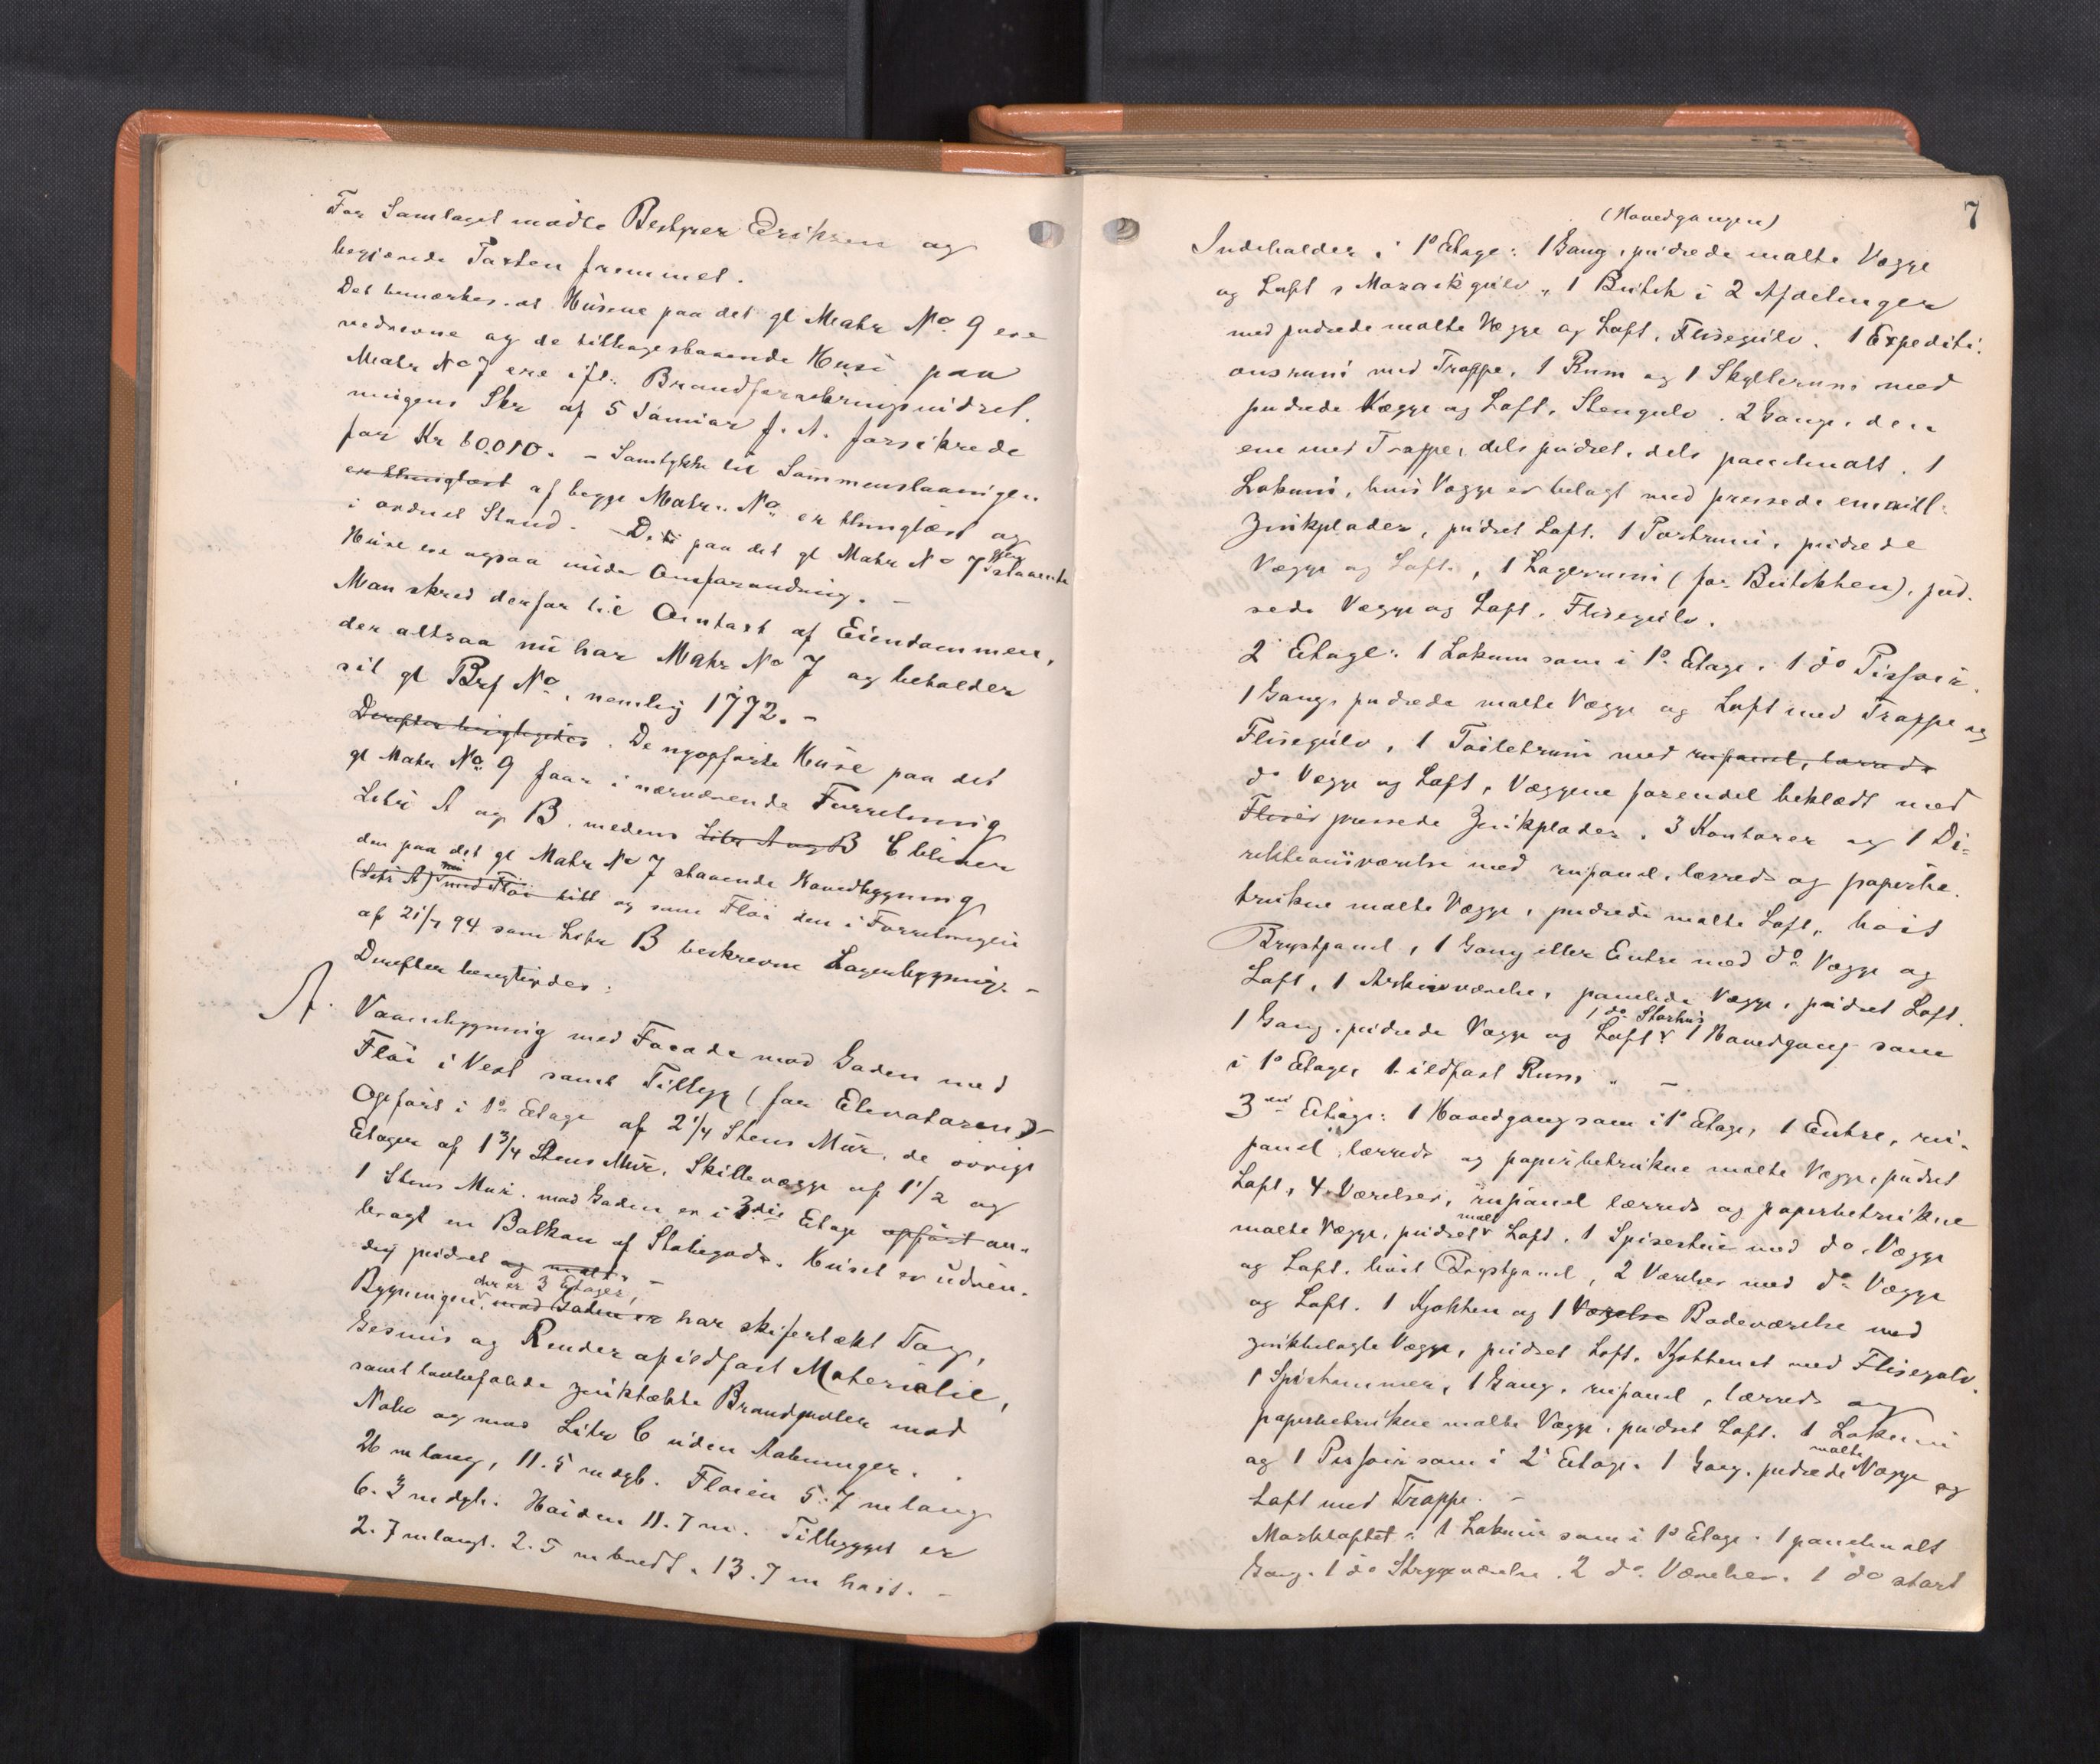 For Samlaget mødte Bestyrer Eriksen og
begjærede Taxten fremmet.
Det bemærkes, at Husene paa det gl Matr No 9 ere
nedrevne og de tilbagestaaende Huse paa
Matr No 7 ere ifl. Brandforsikringsuddrt.
ningens Skr af 5 Januar f. A. forsikrede
for Kr 60.010. – Samtykke til Sammenslaaingen
er thinglæst af begge Matr. No er thinglæst og
i ordnet Stand. – De paa det gl Matr No 7 gjenstaaende
Huse ere ogsaa under Omforandring. –
Man skred derfor til Omtaxt af Eiendommen,
der altsaa nu har Matr No 7 og beholder
sit gl Brf No, nemlig 1772. –
Derefter besigtigedes. De nyopførte Huse paa det
gl Matr No 9 faar i nærværende Forretning
Litr A og B. medens Litr A og B C bliver
den paa det gl Matr No 7 staaende Hovedbygning
(Litr A) nu med Fløi litt og som Fløi den i Forretningen
af 21/7 94 som Litr B beskrevne Lagerbygning. –
Derefter besigtigedes:
A. Vaaningsbygning med Facade mod Gaden med
Fløi i Vest samt Tilbygg (for Elevatoren) –
Opført i 1ste Etage af 2 1/4 Stens Mur, de øvrige
Etager af 1 3/4 Stens Mur. Skillevægge af 1 1/2 og
1 Stens Mur. mod Gaden er i 3die Etage opført an-
bragt en Balkon af Støbegods. Huset er udven-
dig pudset og malt. –
der er 3 Etager,
Bygningen, mod Gaden er har skifertækt Tag,
Gesims og Render af ildfast Materiale,
samt lovbefalede zinktækte Brandgavler mod
Nabo og mod Litr C uden Aabninger.
26 m lang, 11.5 m dyb. Fløien 5.7 m lang
6.3 m dyb. Høiden 11.7 m. Tilbygget er
2.7 m langt. 2.5 m bredt. 13.7 m høit. –
7
(Hovedgangen)
Indeholder i 1ste Etage: 1 Gang, pudsede malte Vægge
og Loft, Mozaikgulv, 1 Butik i 2 Afdelinger
med pudsede malte Vægge og Loft, Flisegulv. 1 Expediti-
onsrum med Trappe, 1 Rum og 1 Skyllerum med
pudsede Vægge og Loft, Stengulv. 2 Gange, den
ene med Trappe, dels pudset, dels panelmalt. 1
Lokum, hvis Vægge er belagt med pressede emaill.
Zinkplader, pudset Loft. 1 Portrum, pudsede
Vægge og Loft, 1 Lagerrum (for Butikken), pud-
sede Vægge og Loft. Flisegulv.
2 Etage: 1 Lokum som i 1ste Etage. 1 do Pissoir.
1 Gang, pudsede malte Vægge og Loft med Trappe og
Flisegulv, 1 Toiletrum med rupanel, lærreds
do Vægge og Loft, Væggene forendel beklædt med
Fliser pressede Zinkplader. 3 Kontorer og 1 Di-
rektionsværelse med rupanel, lærreds og papirbe-
trukne malte Vægge, pudsede malte Loft, høit
Brystpanel, 1 Gang eller Entre med do Vægge og
Loft, 1 Arkivværelse, panelede Vægge, pudset Loft.
1 do Storhus
1 Gang, pudsede Vægge og Loft, 1 Hovedgang som
i 1ste Etage, 1 ildfast Rum. –
3die Etage: 1 Hovedgang som i 1ste Etage, 1 Entre, ru-
panel, lærreds og papirbetrukne malte Vægge, pudset
Loft, 4 Værelser, rupanel lærreds og papirbetrukne
malte Vægge, pudset malt Loft. 1 Spisestue med do Vægge
og Loft, høit Brystpanel, 2 Værelser med do Vægge
og Loft. 1 Kjøkken og 1 Værelse Badeværelse med
zinkbelagte Vægge, pudset Loft, Kjøkkenet med Flisegulv.
1 Spiskammer, 1 Gang, rupanel, lærreds og
papirbetrukne malte Vægge, pudset Loft. 1 Lokum
og 1 Pissoir som i 2 Etage. 1 Gang, pudsede malte Vægge og
Loft med Trappe. –
Mørkloftet: 1 Lokum som i 1ste Etage. 1 panelmalt
Gang. 1 do Strygeværelse. 2 do Værelser. 1 do stort